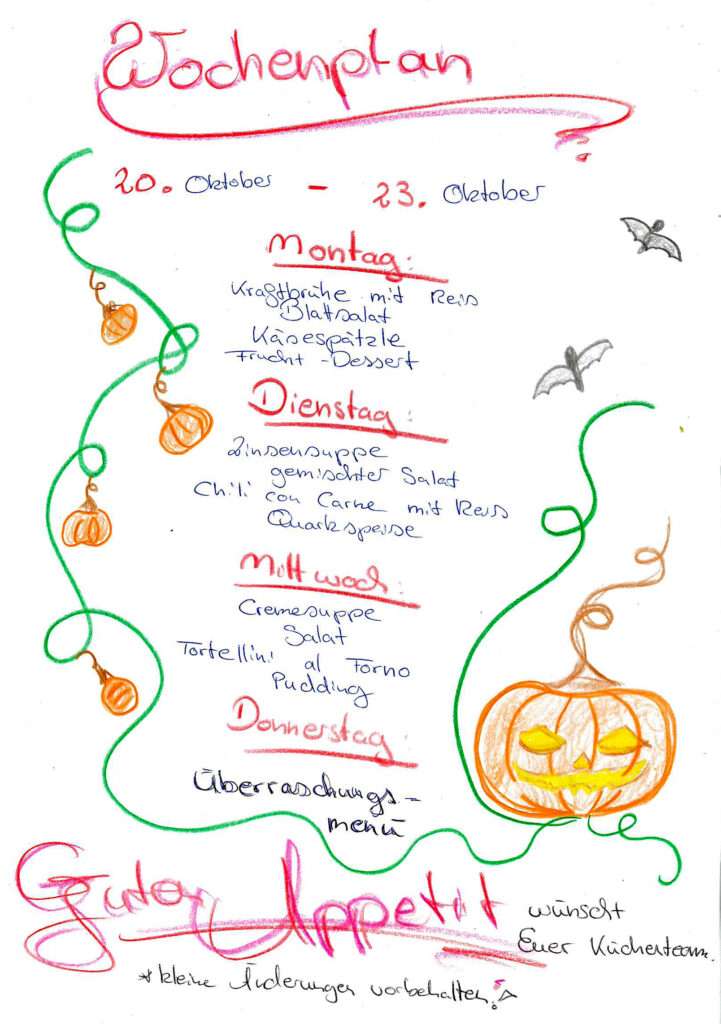 Wochenplan
20. Oktober - 23. Oktober
Montag:
Kraftbrühe mit Reis
Blattsalat
Käsespätzle
Frucht-Dessert
Dienstag:
Linsensuppe
gemischter Salat
Chili con Carne mit Reis
Quarkspeise
Mittwoch:
Cremesuppe
Salat
Tortellini al Forno
Pudding
Donnerstag:
Überraschungs-
menü
Guten Appetit wünscht
Euer Küchenteam.
*kleine Änderungen vorbehalten!